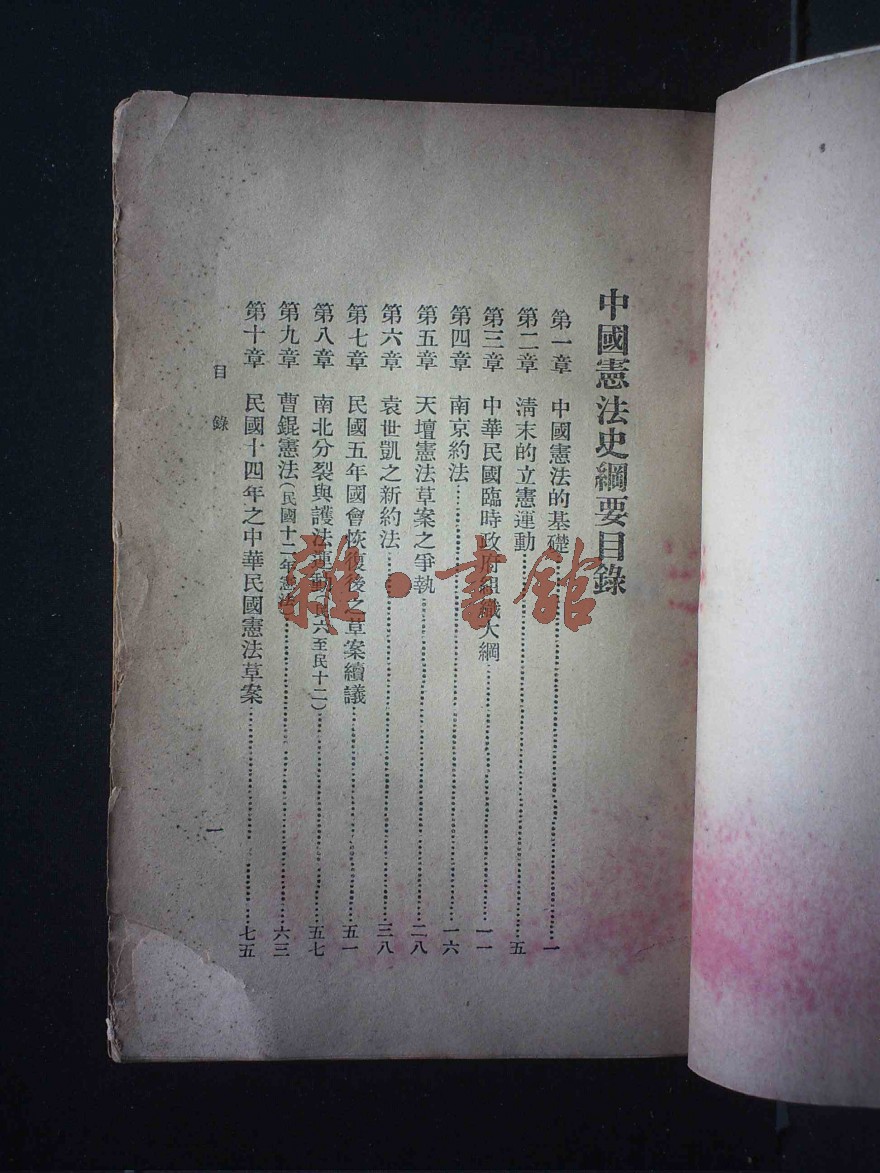 中國憲法史綱要目錄
第一章 中國憲法的基礎……一
第二章 淸末的立憲運動……五
第三章 中華民國臨時政府組織大綱……一一
第四章 南京約法……一六
第五章 天壇憲法草案之爭執……二八
第六章 袁世凱之新約法……三八
第七章 民國五年國會恢復後之草案續議……五一
第八章 南北分裂與護法運動(民六至民十二)……五七
第九章 曹錕憲法(民國十二年憲法)……六三
第十章 民國十四年之中華民國憲法草案……七五
目錄
一
雜·書館